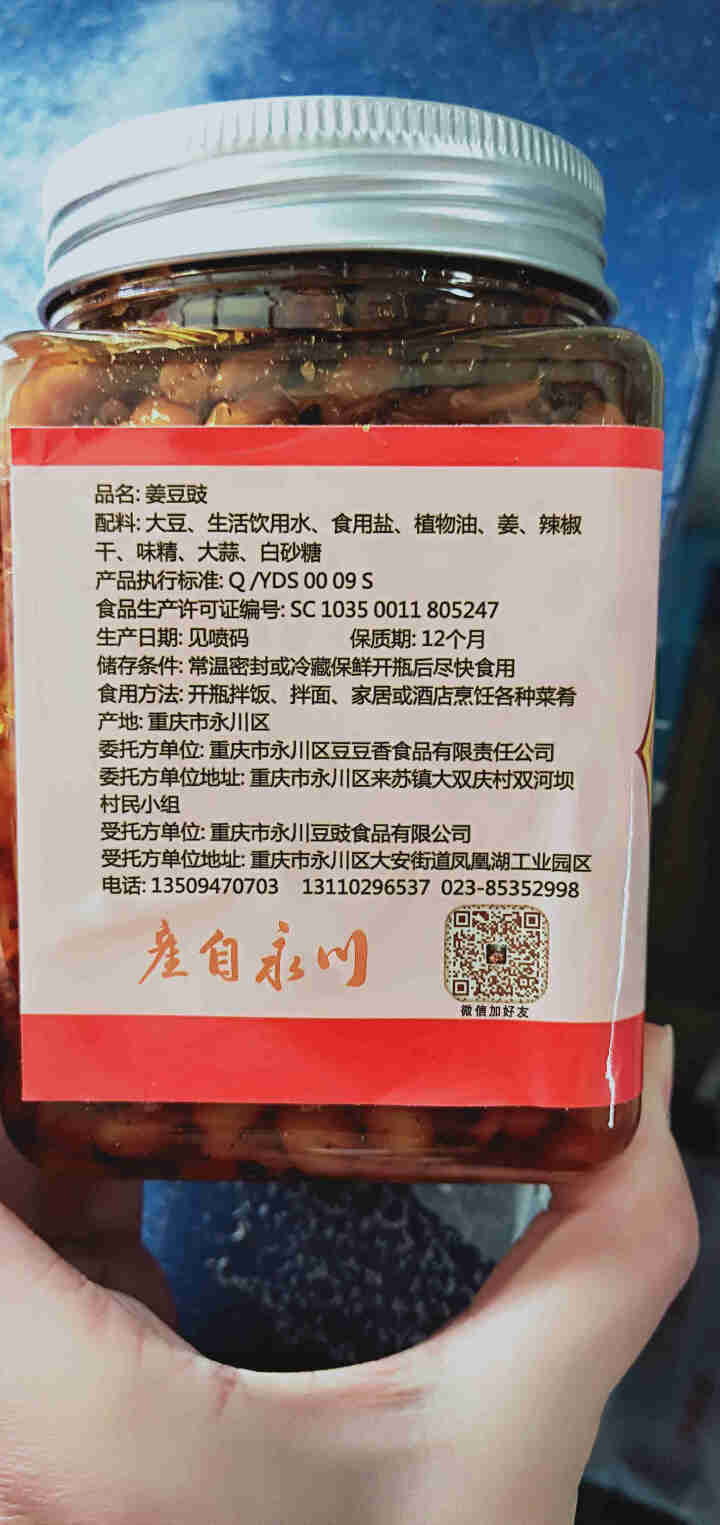 品名: 姜豆豉
配料: 大豆、生活饮用水、食用盐、植物油、姜、辣椒
干、味精、大蒜、白砂糖
产品执行标准: Q /YDS 00 09 S
食品生产许可证编号: SC 1035 0011 805247
生产日期: 见喷码 保质期: 12个月
储存条件: 常温密封或冷藏保鲜开瓶后尽快食用
食用方法: 开瓶拌饭、拌面、家居或酒店烹饪各种菜肴
产地: 重庆市永川区
委托方单位: 重庆市永川区豆豆香食品有限责任公司
委托方单位地址: 重庆市永川区来苏镇大双庆村双河坝
村民小组
受托方单位: 重庆市永川豆豉食品有限公司
受托方单位地址: 重庆市永川区大安街道凤凰湖工业园区
电话: 13509470703 13110296537 023-85352998
產自永川
微信加好友